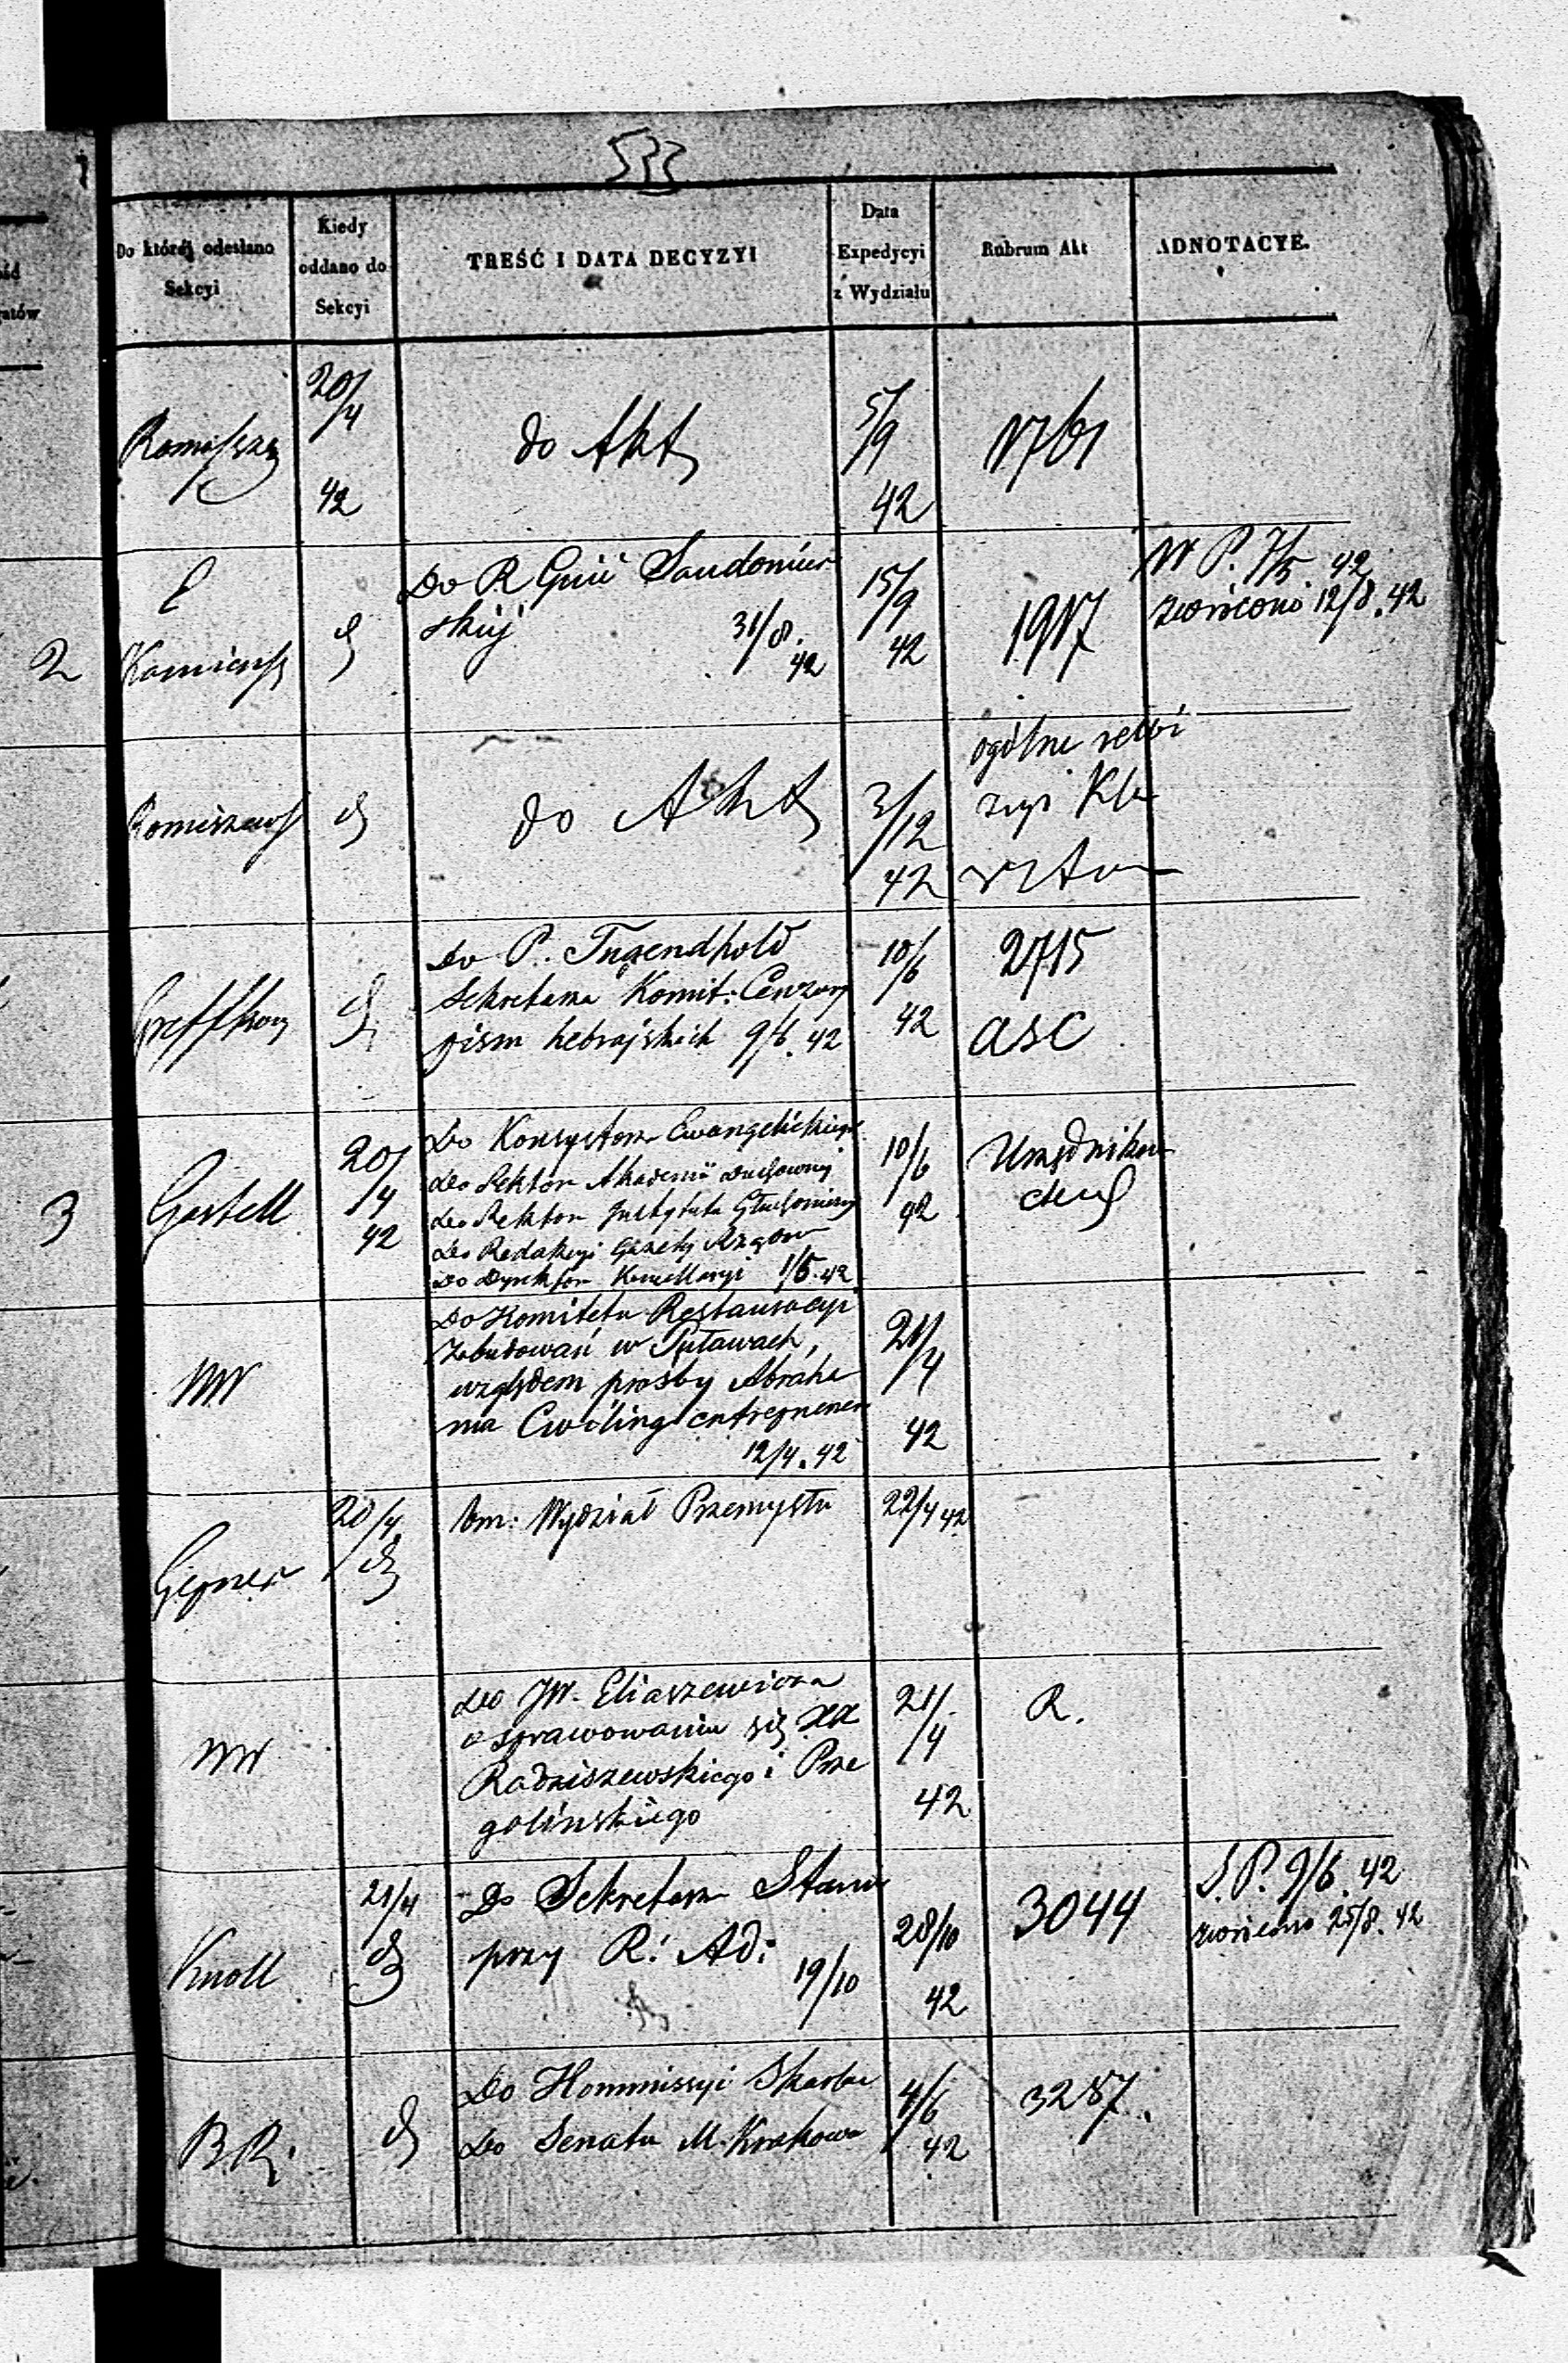 533
Do której odesłano
Sekcyi
Kiedy
oddano do
Sekcyi
TREŚĆ I DATA DECYZYI
Data
Expedycyi
z Wydziału
Rubrum Akt
ADNOTACYE.
20/4
42
do Akt
5/9
42
1761
2
Do R Gnii Sandomier
skiej 31/8.
42
15/9
42
1917
W P. 7/5. 42
zwrócono 12/8. 42
do Akt
3/12
42
ogólne
Do P. Tugendhold
Sekretarza Komit: Cenzury
pism hebrajskich 9/6. 42
10/6
42
2715
asc
3
Gastell
20/4
42
Do Konsystorza Ewangelickiego
do Rektora Akademii Duchownej
do Rektora Instytutu Głuchoniemych
do Redakcyi Gazety Rządow
Do Dyrektora Kancellaryi 1/5. 42
10/6
42
Urzędników
MW
Do Komitetu Restauracyi
Zabudowań w Puławach,
względem prośby Abraha
ma Cwiling entreprenera
12/4. 42
21/4
42
Gepner
20/4
Wydział Przemysłu
22/4 42
MW
do JW. Eliaszewicza
o sprawowaniu się XX
Radziszewskiego i Prze
golińskiego
21/4
42
R.
Knoll
21/4
Do Sekretarza Stanu
przy R. Ad:
19/10
28/10
42
3044
S. P. 9/6. 42
zwrócono 25/8. 42
B.R.
Do Kommissyi Skarbu
Do Senatu M. Krakowa
4/6
42
3287.